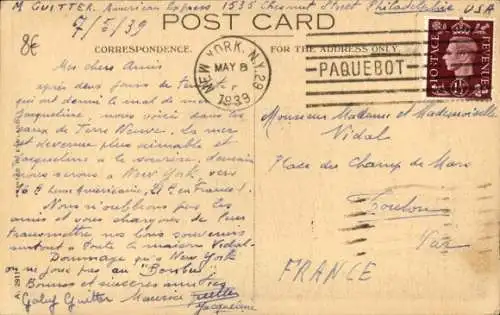 M GUITTER. American Express 1535 Chesnut Street Philadelphie USA
POST CARD
7/5/39
8€
CORRESPONDENCE.
FOR THE ADDRESS ONLY.
NEW YORK, N.Y. 29
MAY 8
1939
PAQUEBOT
POSTAGE
REVENUE
Mes chers Amis
après deux jours de
qui ont donné le mal de mer
Jacqueline, nous voici dans les
eaux de Terre Neuve. La mer
est devenue plus aimable et
Jacqueline a le sourire, demain
nous serons à New York vers
heure Américaine, 21 h en France.
Nous n'oublions pas les
amis et vous chargeons de leur
transmettre nos bons souvenirs
surtout à toute la maison Vidal.
Dommage qu'à New York
on ne joue pas au "Bombu"
Bonnes et sincères amitiés
Gaby Guitter Maurice Guitter
Jacqueline
Monsieur Madame et Mademoiselle
Vidal
Place du Champ de Mars
Toulon
Var
FRANCE